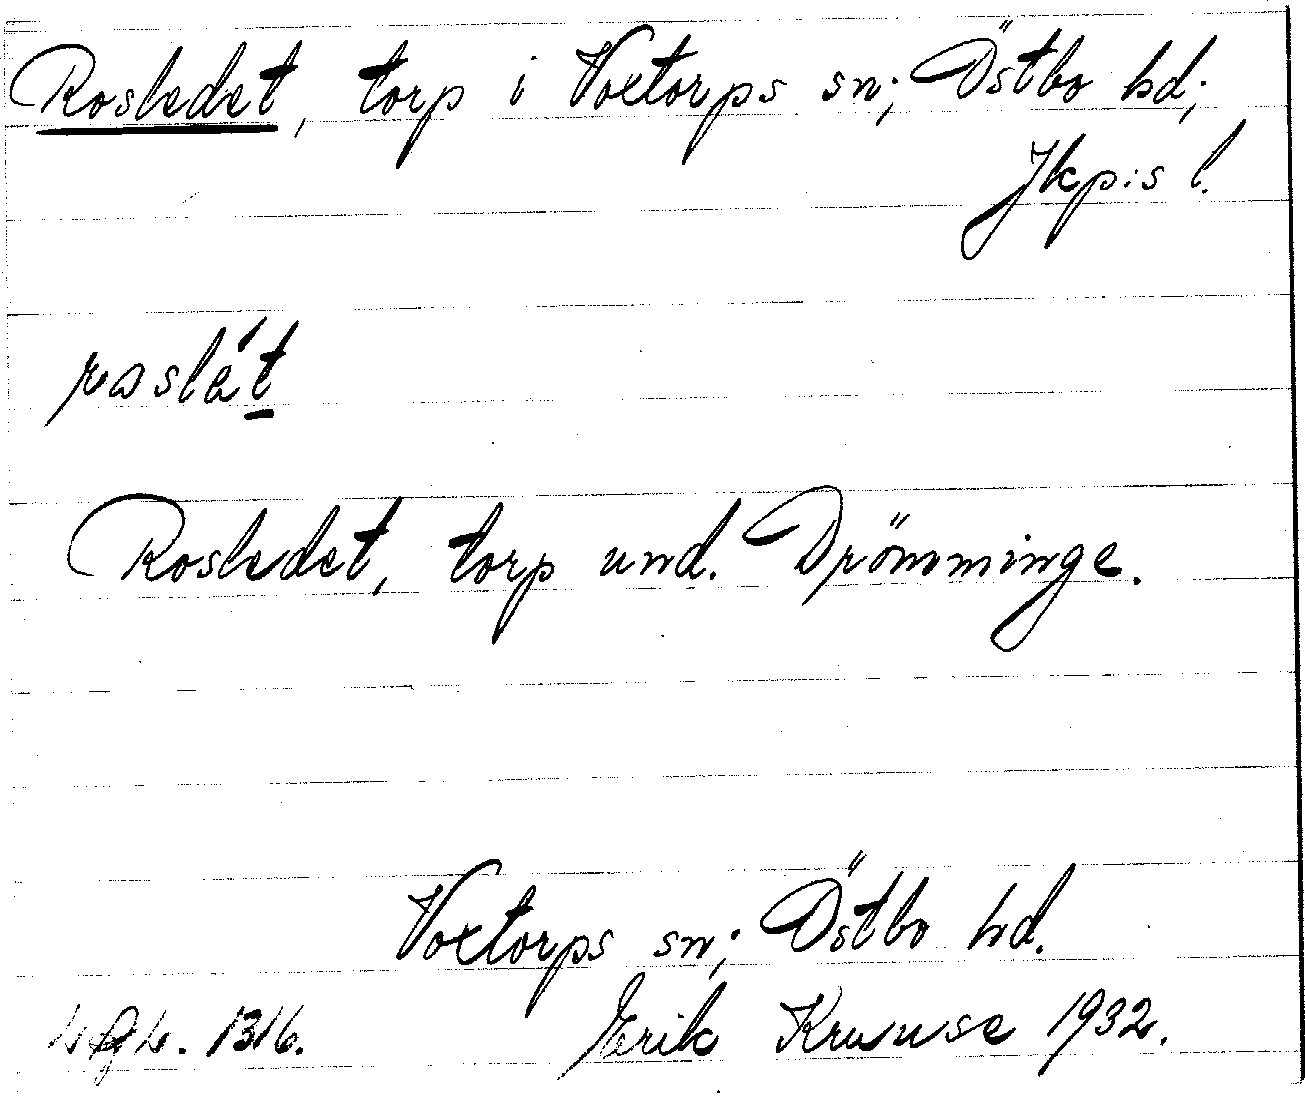 Rosledet, torp i Voxtorps sn; Östbo hd;
Jkp:s l.
Rosledet, torp und. Drömminge.
Voxtorps sn; Östbo hd.
1316. Erik Kruuse 1932.